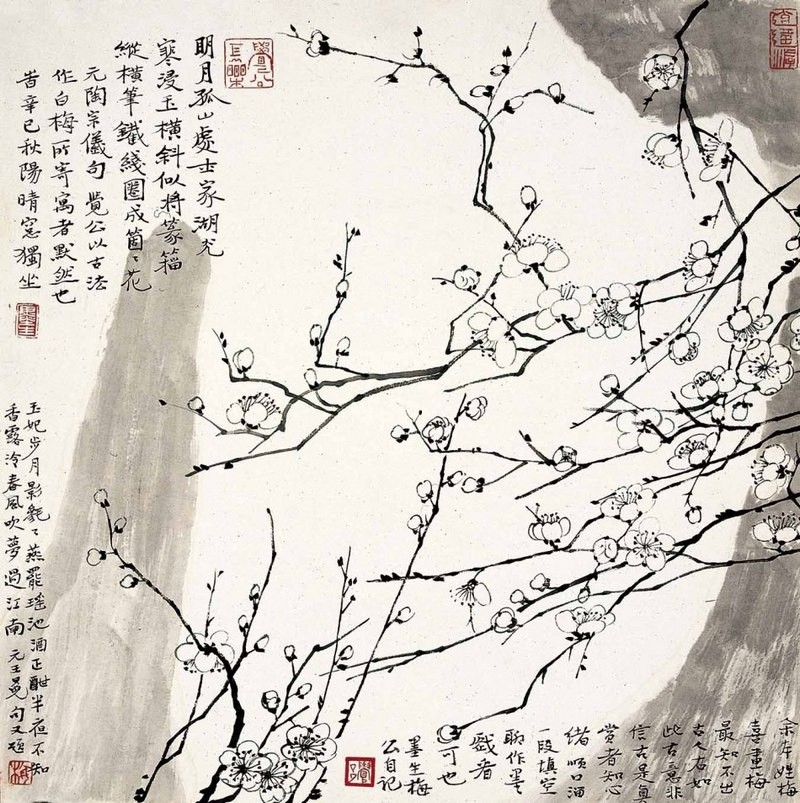 明月孤山處士家湖光
寒浸玉橫斜似將篆籀
縱橫筆鐵綫圈成箇〻花
元陶宗儀句 覺公以古法
作白梅所寄寓者默然也
昔辛巳秋陽晴窓獨坐
玉妃步月影毿〻燕罷瑤池酒正酣半夜不知
香露冷春風吹夢過江南 元王冕句又題
余本姓梅
喜畫梅
最知不出
古人右如
此古意非
信古是奧
賞者知心
緒順口酒
一段填空
聊作墨
戲看
可也
墨生梅
公自記